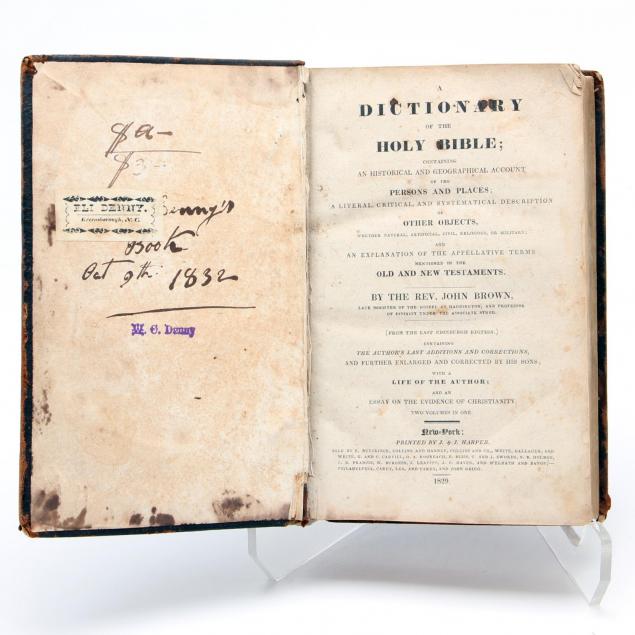 $a-
$3-
ELI DENNY,
Greensborough, N.C.
Denny's
Book
Oct 9th: 1832
W. C. Denny
A
DICTIONARY
OF THE
HOLY BIBLE;
CONTAINING
AN HISTORICAL AND GEOGRAPHICAL ACCOUNT
OF THE
PERSONS AND PLACES;
A LITERAL, CRITICAL, AND SYSTEMATICAL DESCRIPTION
OF
OTHER OBJECTS,
WHETHER NATURAL, ARTIFICIAL, CIVIL, RELIGIOUS, OR MILITARY;
AND
AN EXPLANATION OF THE APPELLATIVE TERMS
MENTIONED IN THE
OLD AND NEW TESTAMENTS.
BY THE REV. JOHN BROWN,
LATE MINISTER OF THE GOSPEL AT HADDINGTON, AND PROFESSOR
OF DIVINITY UNDER THE ASSOCIATE SYNOD.
[FROM THE LAST EDINBURGH EDITION.]
CONTAINING
THE AUTHOR'S LAST ADDITIONS AND CORRECTIONS,
AND FURTHER ENLARGED AND CORRECTED BY HIS SONS;
WITH A
LIFE OF THE AUTHOR;
AND AN
ESSAY ON THE EVIDENCE OF CHRISTIANITY.
TWO VOLUMES IN ONE.
New-York;
PRINTED BY J. & J. HARPER.
SOLD BY COLLINS AND HANNAY, COLLINS AND CO., WHITE, GALLAHER, AND
WHITE, G. AND C. CARVILL, O. A. ROORBACH, E. BLISS, T. AND J. SWORDS, N. B. HOLMES,
M'ELRATH AND BANGS;—
PHILADELPHIA, CAREY, LEA, AND CAREY, AND JOHN GRIGG.
1829.